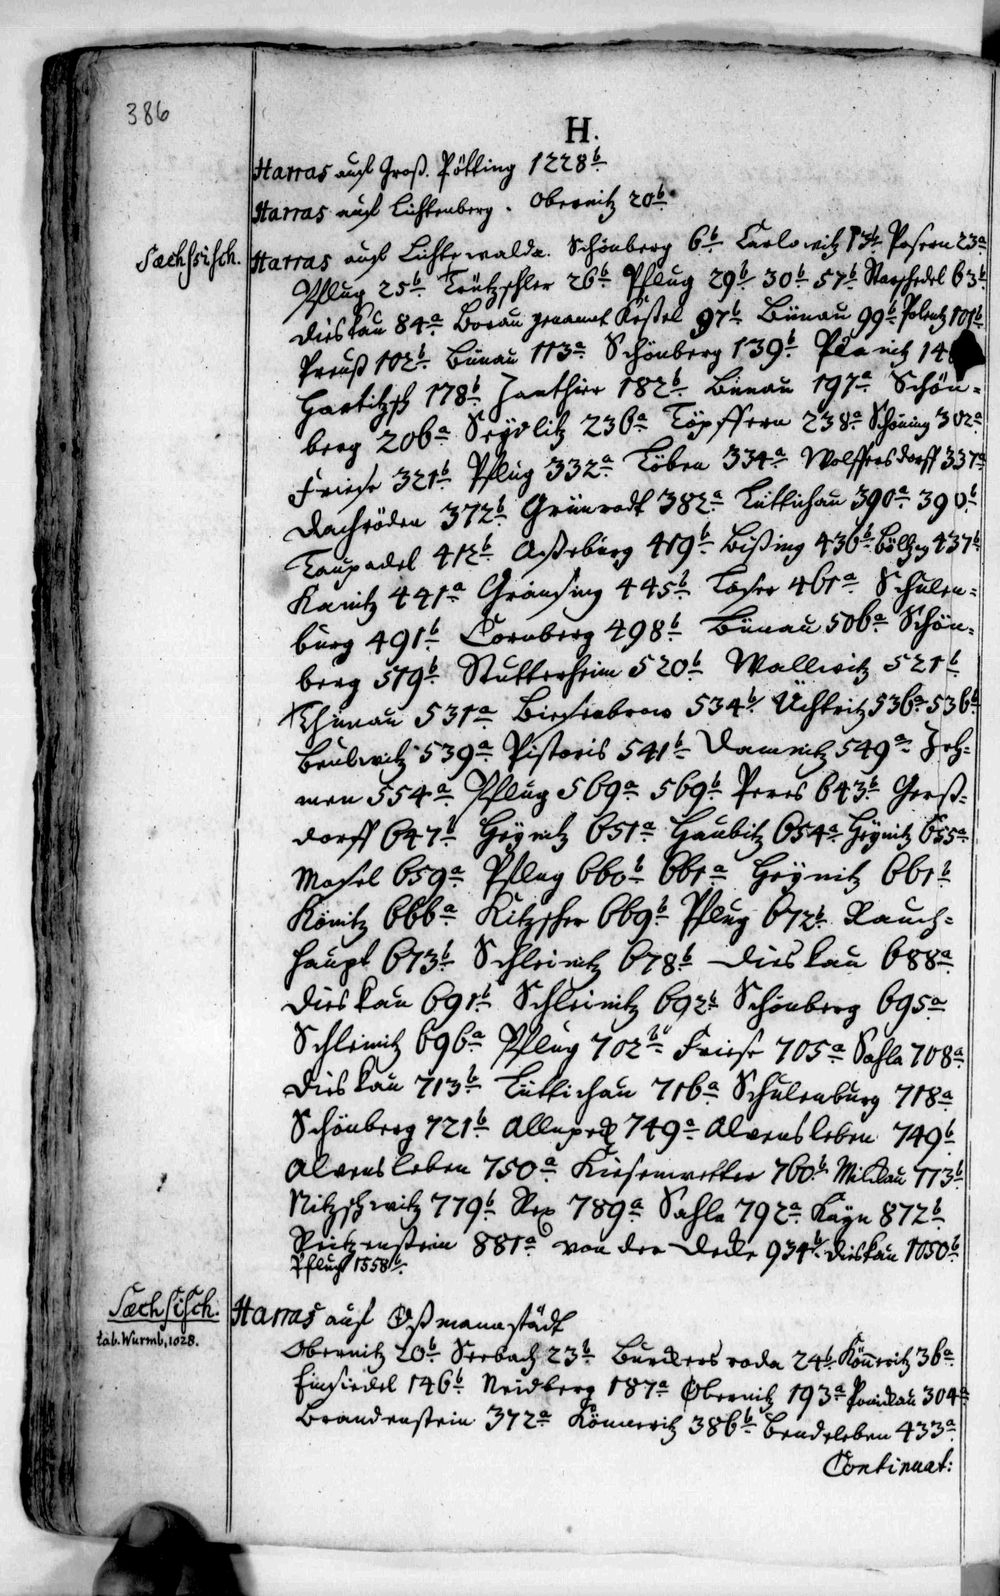 386
H.
Harras auf Groß. Pötting 1228b.
Harras auf Lichtenberg. Obernitz 20b.
Sæchsisch.
Harras auf Lichtewalda. Schönberg 6b. Carlowitz 13b. Posern 23a
Pflug 25b. Trützschler 26b. Pflug 29b. 30b. 57b. Marschedel 63b.
Dieskau 84a. Borau genannt Keßel 97b. Bünau 99b. Polentz 101b.
Preuß 102b. Bünau 113a. Schönberg 139b. Planitz 14
Hartitzsch 178b. Janthier 182b. Bünau 197a. Schön=
berg 206a. Seydlitz 236a. Töpffern 238a. Schöning 302a
Friese 321b. Pflug 332a. Löben 334a. Wolffersdorff 337a
Dachröden 372b. Grünrodt 382a. Lüttichau 390a. 390b.
Taupadel 412b. Aßeburg 419b. Bißing 436b. 437b.
Kanitz 441a. Gränsing 445b. Loser 461a. Schulen=
burg 491b. Cornberg 498b. Bünau 506a. Schön=
berg 519b. Stutterheim 520b. Wallwitz 521b.
Thünau 531a. Biesenbrow 534b. Üchtritz 536a. 536b.
Beulwitz 539a. Pistoris 541b. Damnitz 549a. Jeh=
men 554a. Pflug 569a. 569b. Peres 643b. Gerß=
dorff 647b. Heynitz 651a. Haubitz 654a. Heynitz 655a.
Mosel 659a. Pflug 660b. 661a. Heynitz 661b.
Könitz 666a. Kitzscher 669b. Pflug 672b. Rauch=
haupt 673b. Schleinitz 678b. Dieskau 688a.
Dieskau 691b. Schleinitz 692b. Schönberg 695a.
Schleinitz 696a. Pflug 702b. Friese 705a. Sahla 708a.
Dieskau 713b. Lüttichau 716a. Schulenburg 718a.
Schönberg 721b. Allnpeck 749a. Alvensleben 749b.
Alvensleben 750a. Kiesenwetter 760b. Milkau 773b.
Nitzschwitz 779b. Rex 789a. Sahla 792a. Kayn 872b.
Reitzenstein 881a. von der Decke 934b. Dieskau 1050b.
Pflug 1558b.
Sæchsisch.
tab. Wurmb, 1028.
Harras auf Oßmannstädt
Obernitz 20b. Seebach 23b. Burckersroda 24b. Könneritz 36a.
Einsiedel 146b. Neidberg 187a. Obernitz 193a. Ponickau 304a
Brandenstein 372a. Könneritz 386b. Bendeleben 433a.
Continuat: